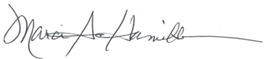 Marci A. Hamilton